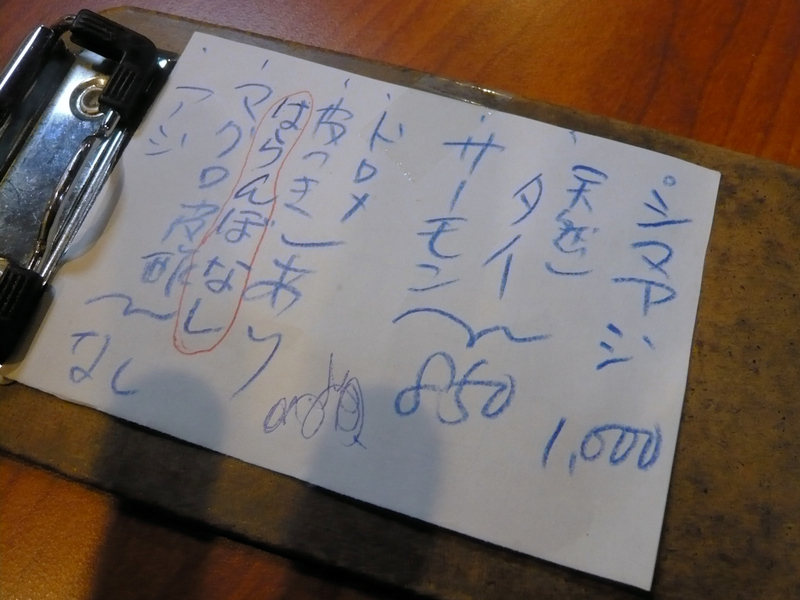 シマアジ
1,000
天然
タイ
サーモン
850
ドロメ
皮つき
あり
はらんぼなし
マグロ皮
アジ
なし